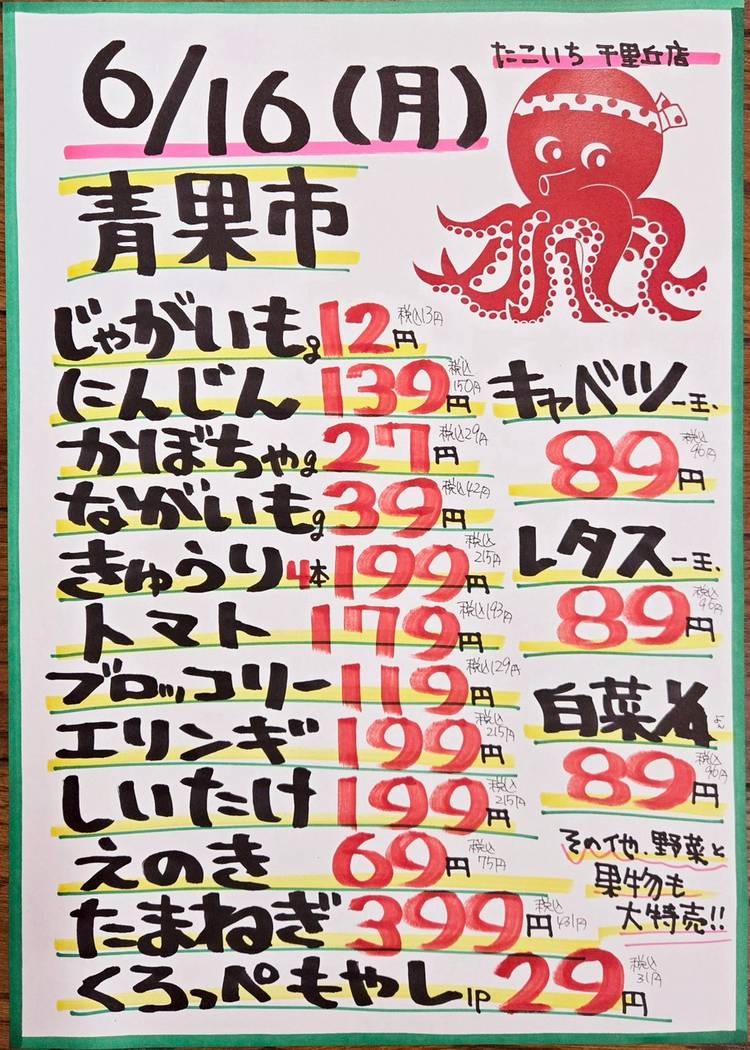 たこいち 千里丘店
6/16(月)
青果市
じゃがいもg 12円 税込13円
にんじん 139円 税込150円
かぼちゃg 27円 税込29円
ながいもg 39円 税込42円
きゅうり4本 199円 税込215円
トマト 179円 税込193円
ブロッコリー 119円 税込129円
エリンギ 199円 税込215円
しいたけ 199円 税込215円
えのき 69円 税込75円
たまねぎ 399円 税込431円
くろっぺもやし1P 29円 税込31円
キャベツ一玉、
89円 税込96円
レタス一玉、
89円 税込96円
白菜1/4
89円 税込96円
その他、野菜と
果物も
大特売!!